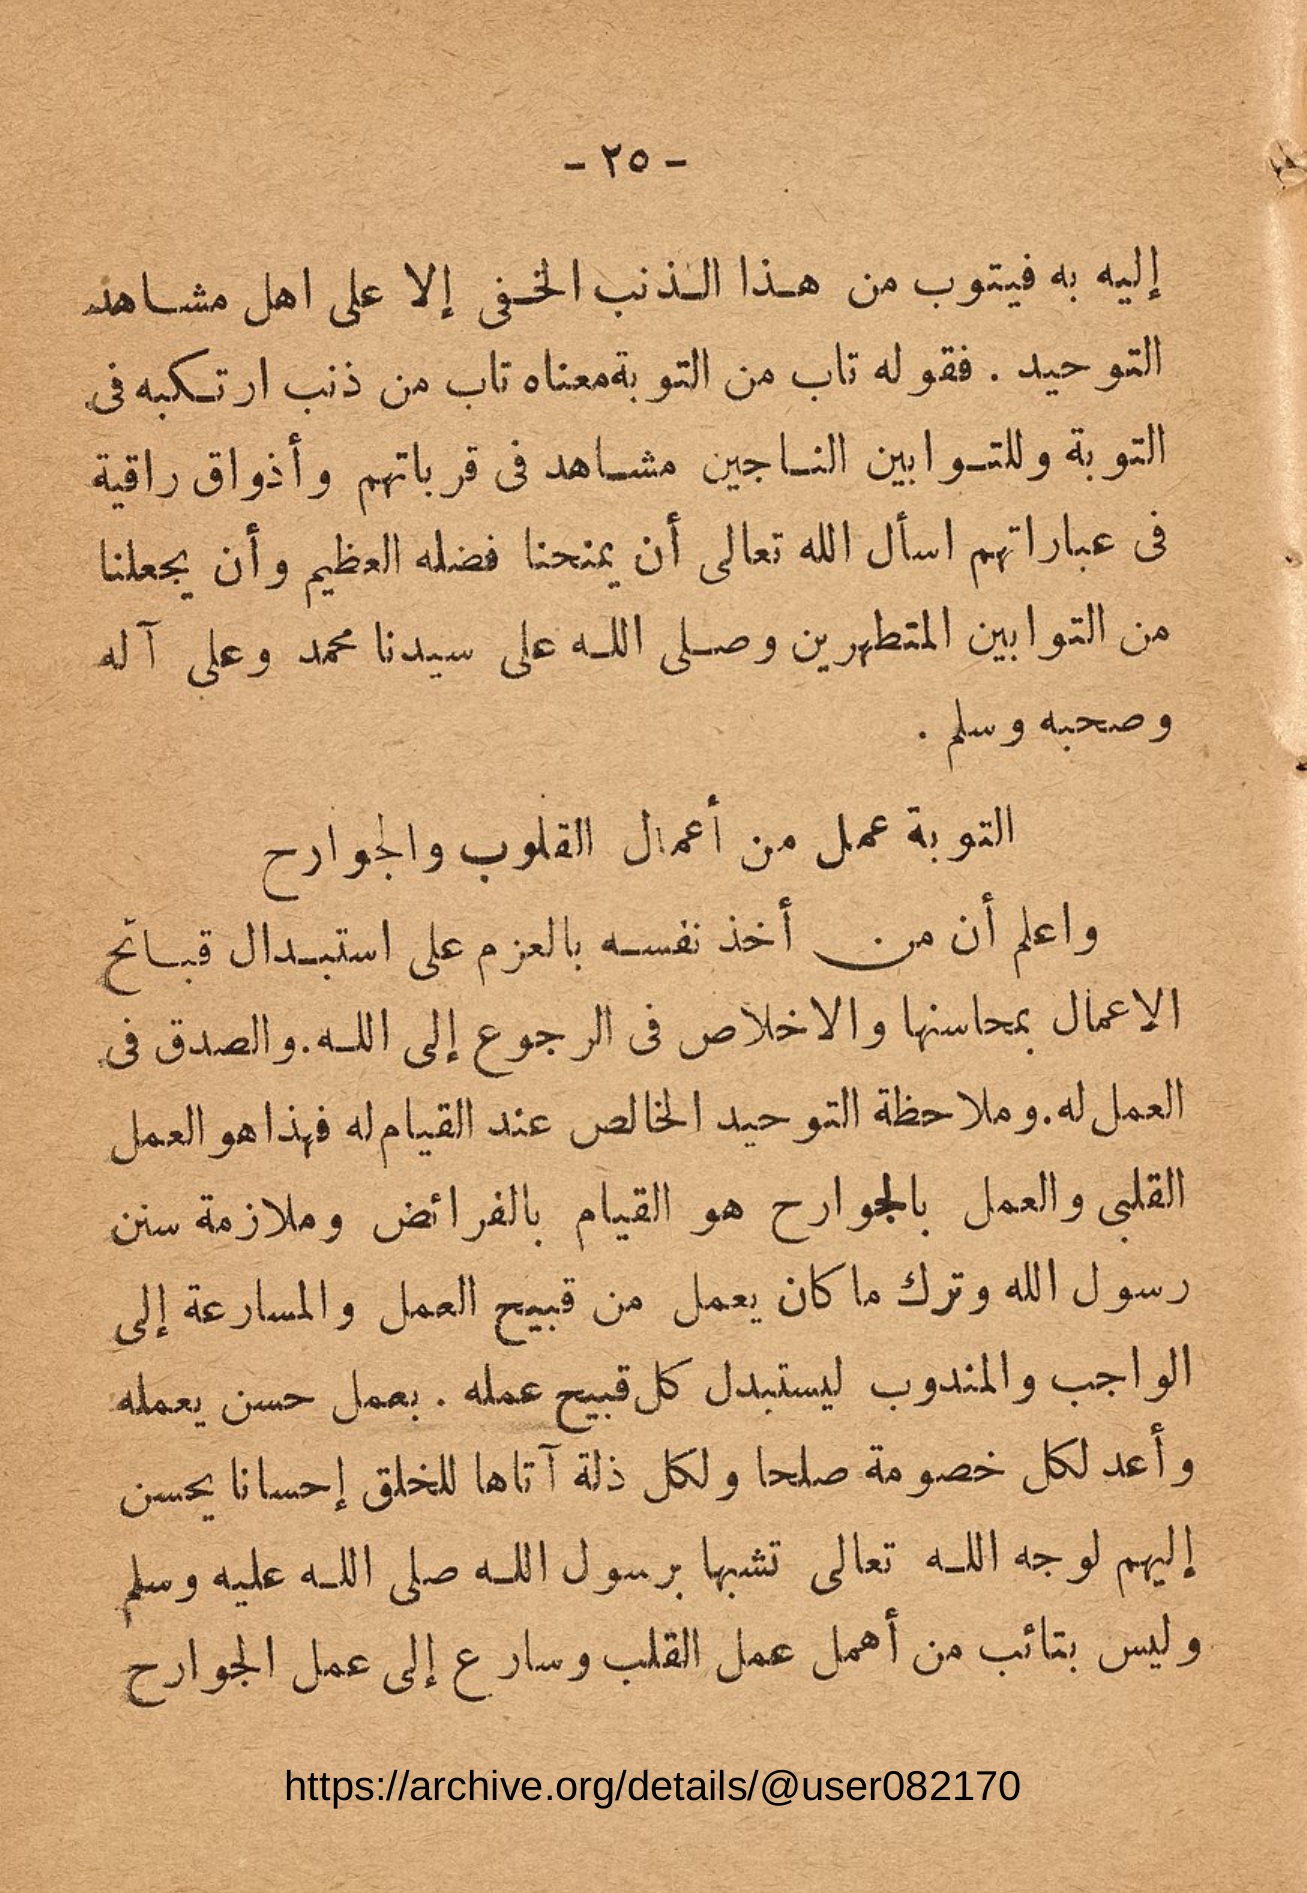 - ٢٥ -
إليه به فيتوب من هذا الذنب الخفى إلا على اهل مشاهد
التوحيد . فقوله تاب من التوبة معناه تاب من ذنب ارتكبه فى
التوبة وللتوابين الناجين مشاهد فى قرباتهم وأذواق راقية
فى عباراتهم اسأل الله تعالى أن يمنحنا فضله العظيم وأن يجعلنا
من التوابين المتطهرين وصلى الله على سيدنا محمد وعلى آله
وصحبه وسلم .
التوبة عمل من أعمال القلوب والجوارح
واعلم أن من أخذ نفسه بالعزم على استبدال قبائح
الاعمال بمحاسنها والاخلاص فى الرجوع إلى الله . والصدق فى
العمل له . وملاحظة التوحيد الخالص عند القيام له فهذا هو العمل
القلبى والعمل بالجوارح هو القيام بالفرائض وملازمة سنن
رسول الله وترك ما كان يعمل من قبيح العمل والمسارعة إلى
الواجب والمندوب ليستبدل كل قبيح عمله . بعمل حسن يعمله
وأعد لكل خصومة صلحا ولكل ذلة آتاها للخلق إحسانا يحسن
إليهم لوجه الله تعالى تشبها برسول الله صلى الله عليه وسلم
وليس بتائب من أهمل عمل القلب وسارع إلى عمل الجوارح
https://archive.org/details/@user082170